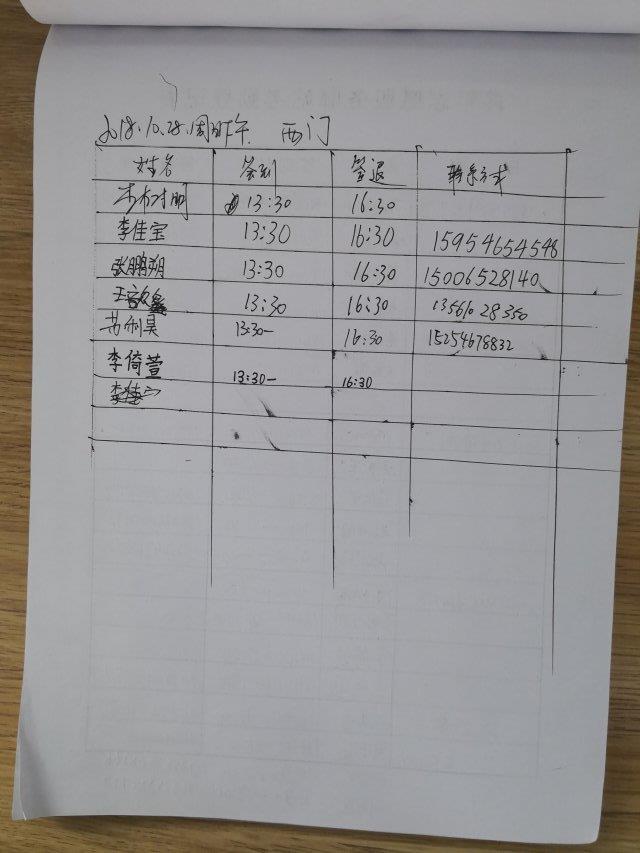 2018.10.28.周日下午 西门
姓名 签到 签退 联系方式
13:30 16:30
李佳宝 13:30 16:30 15954654548
张鹏翔 13:30 16:30 15006528140
王歆 13:30 16:30 13561028350
苏俐昊 13:30- 16:30 15254678832
李倚萱 13:30- 16:30